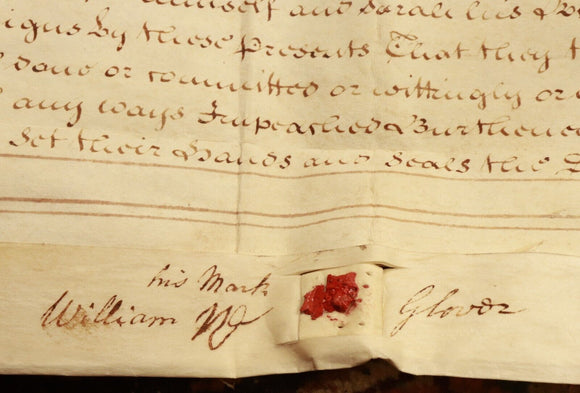 himself and Sarah his
signs by these Presents That they
done or committed or wittingly or
any ways Impeached Burthened
set their Hands and Seals the
his Mark
William Glover